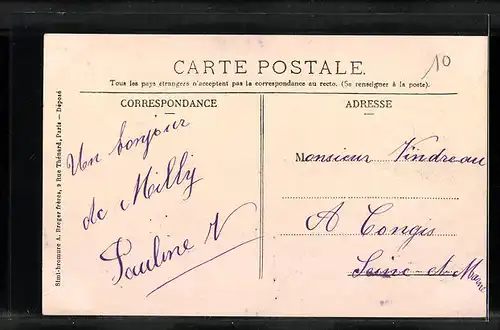 10
CARTE POSTALE.
Tous les pays étrangers n'acceptent pas la correspondance au recto. (Se renseigner à la poste).
CORRESPONDANCE
ADRESSE
Un bonjour
de Milly
Pauline V
Monsieur Vindreau
A Congis
Seine-et-Marne
Simi-bromure A. Breger frères, 9 Rue Thénard, Paris — Déposé